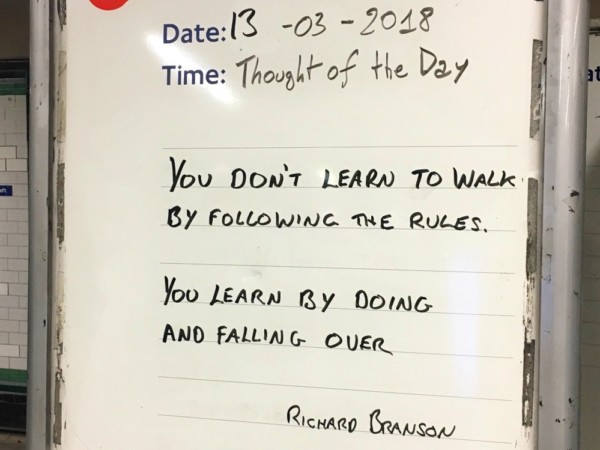 Date: 13 -03-2018
Time: Thought of the Day
YOU DON'T LEARN TO WALK
BY FOLLOWING THE RULES.
YOU LEARN BY DOING
AND FALLING OVER
RICHARD BRANSON